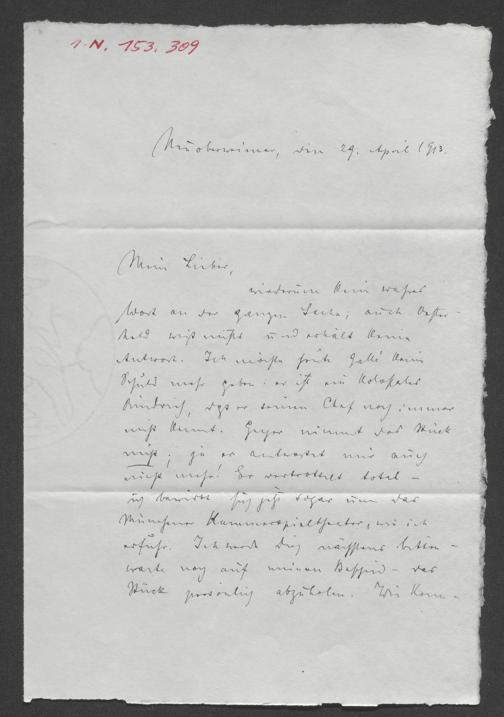 I.N. 153.309
Neuoberweimar, den 29. April 1913.
Mein Lieber,
wiederum kein wahres
Wort an der ganzen Sache; auch Oster-
held weiß nichts und erhält keine
Antwort. Ich möchte heute Gallé kein
Schuld mehr geben: er ist ein kolossales
daß er seinen Chef noch immer
nicht kennt. Geyer nimmt das Stück
nicht; ja er antwortet mir auch
nicht mehr! Er vertrottelt total –
bewirbt sich jetzt sogar um das
Münchner Kammerspieltheater, wie ich
erfuhr. Ich werde Dich nächstens bitten –
warte noch auf meinen Bescheid – das
Stück persönlich abzuholen. Wir